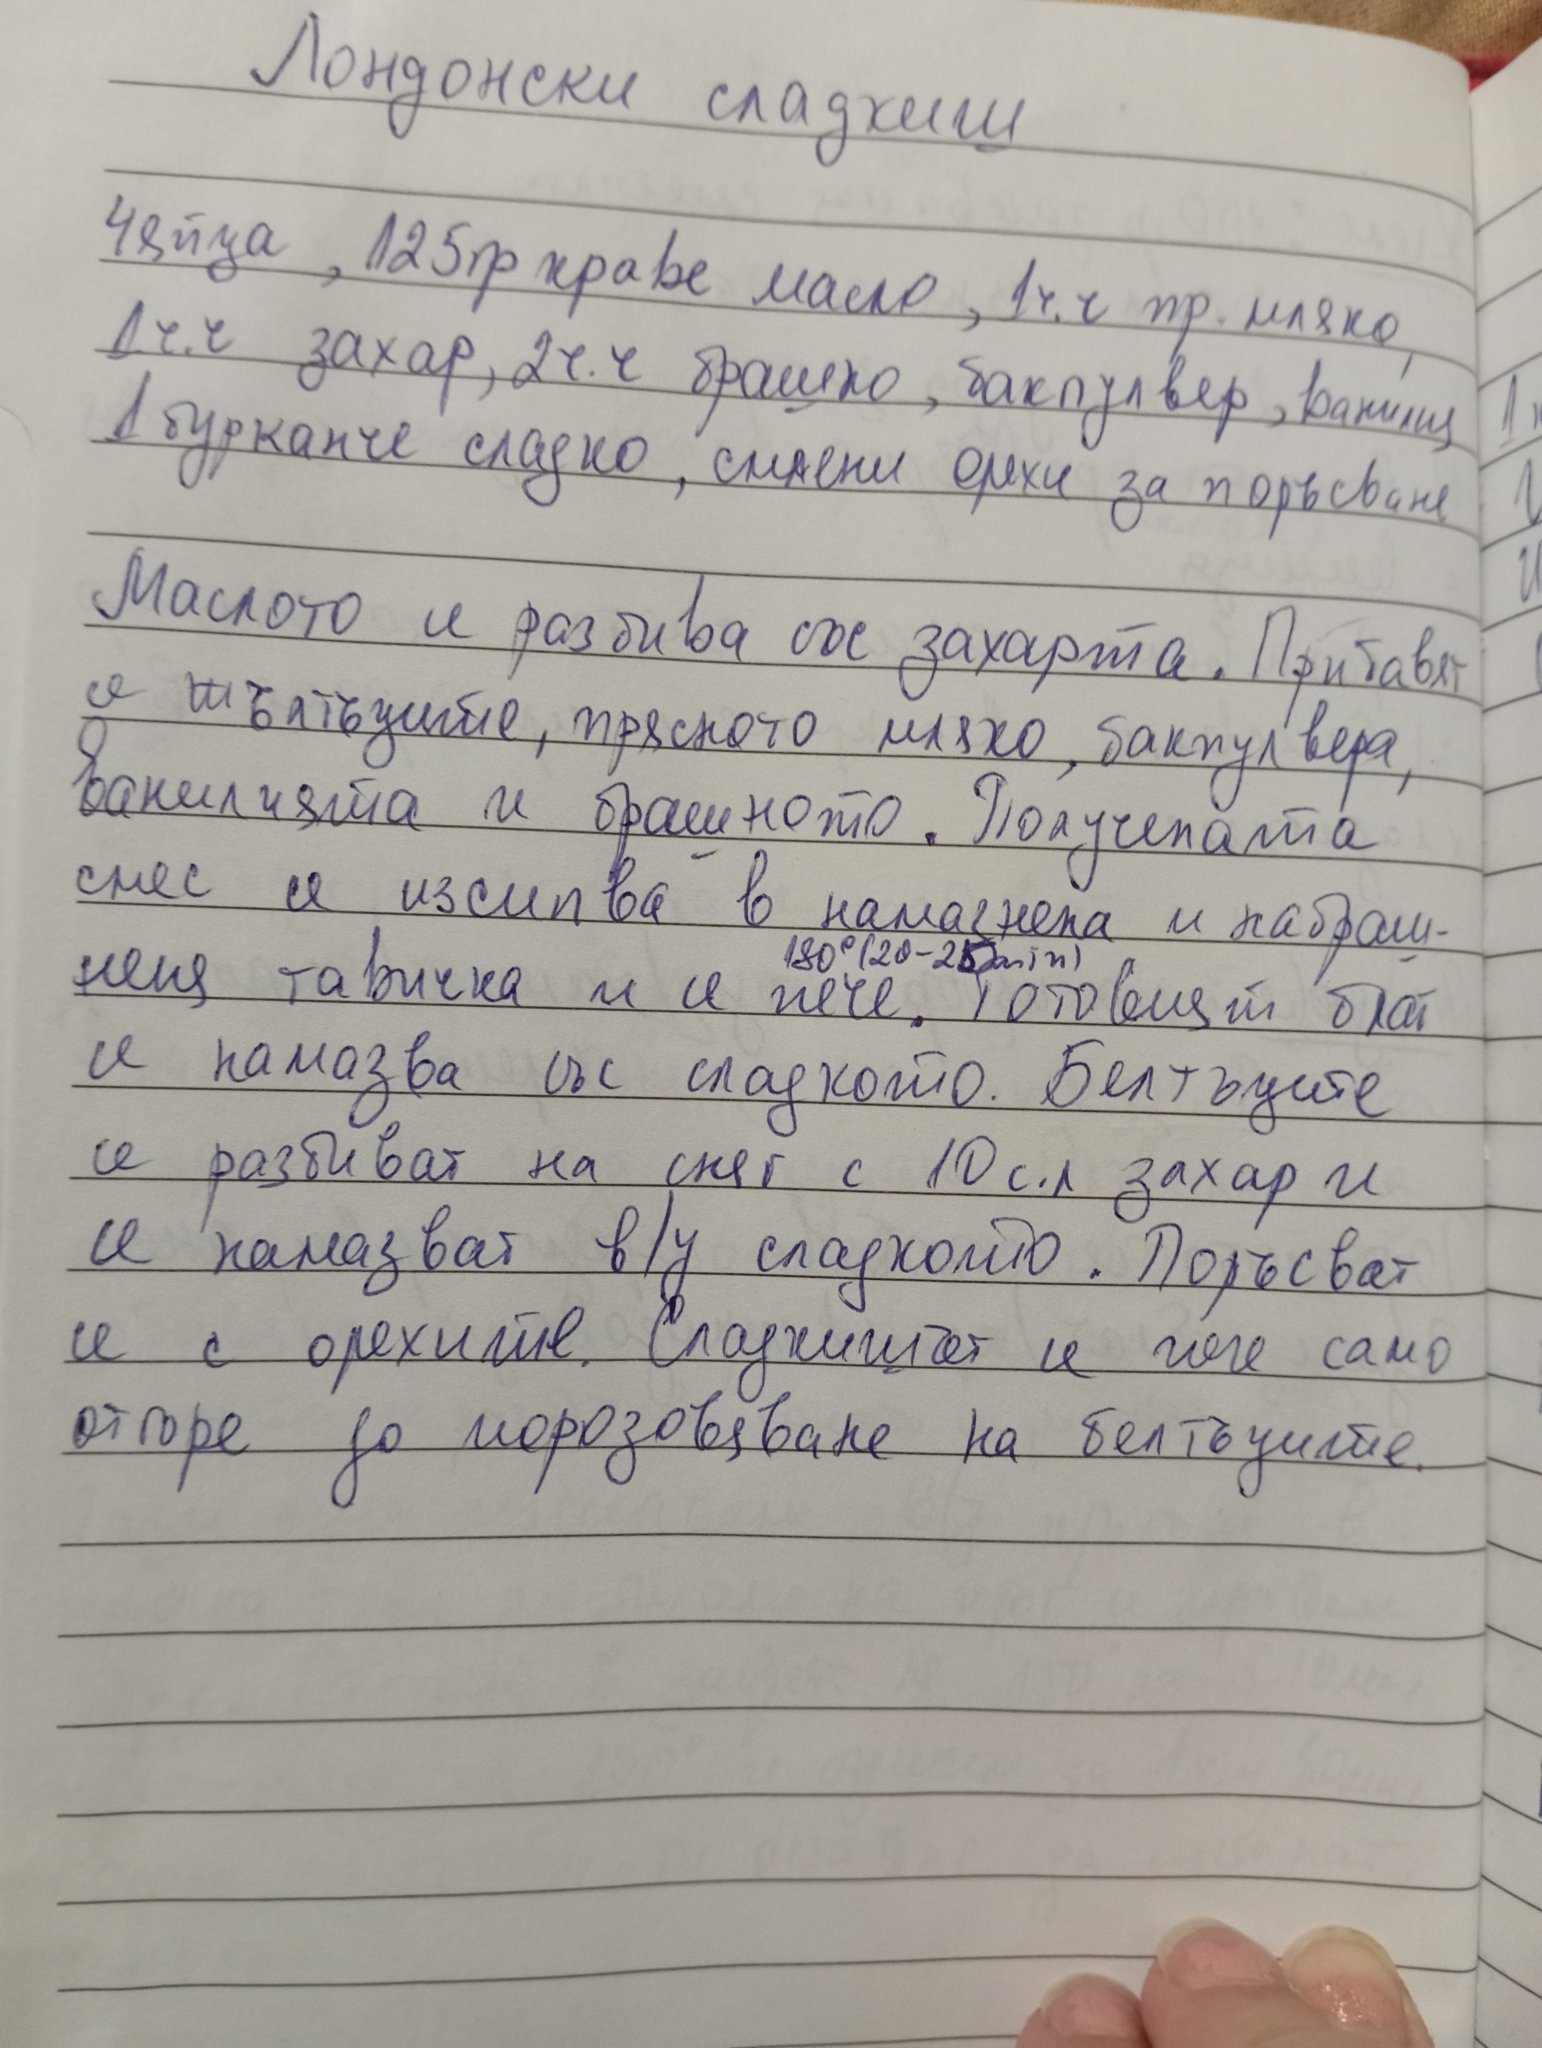 Лондонски сладкиш
4 яйца, 125 гр краве масло, 1 ч.ч пр. мляко,
1 ч.ч захар, 2 ч.ч брашно, бакпулвер, ванилия
1 бурканче сладко, смлени орехи за поръсване
Маслото се разбива със захарта. Прибавят
се жълтъците, прясното мляко, бакпулвера,
ванилията и брашното. Получената
смес се изсипва в намазнена и набраш-
нена тавичка и се пече. Готовият блат
180° (20-25 min)
се намазва със сладкото. Белтъците
се разбиват на сняг с 10 с.л захар и
се намазват в/у сладкото. Поръсват
се с орехите. Сладкишът се пече само
отгоре до порозовяване на белтъците.